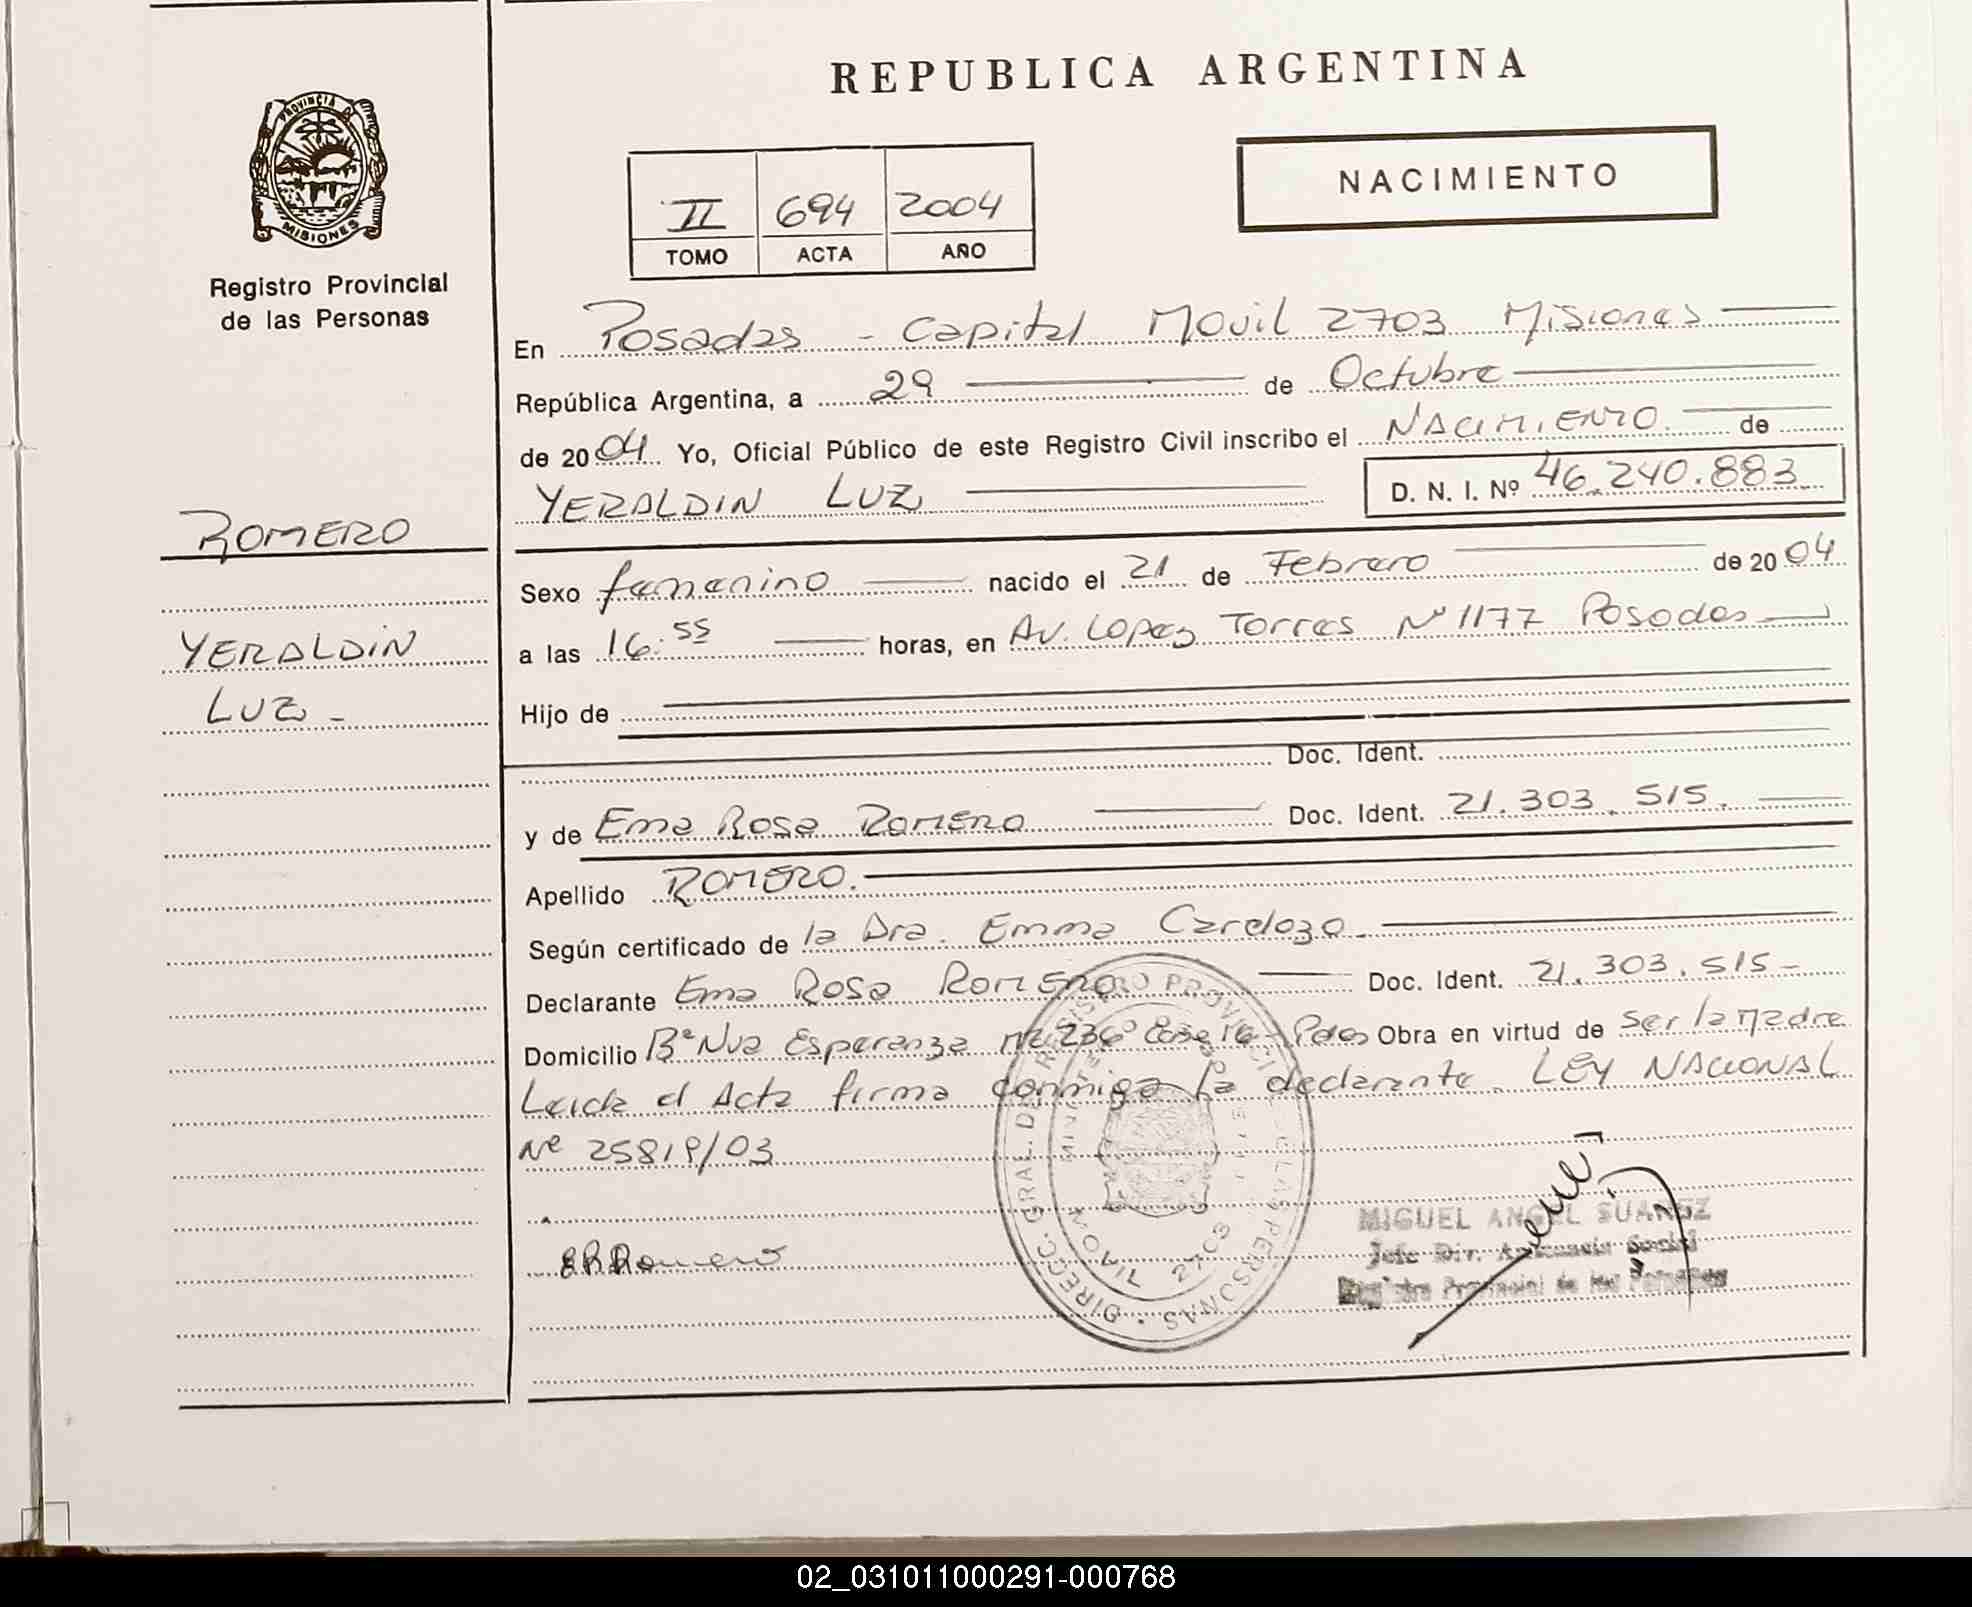 REPUBLICA ARGENTINA
PROVINCIA DE
MISIONES
Registro Provincial
de las Personas
II 694 2004
TOMO ACTA AÑO
NACIMIENTO
En Posadas - Capital Movil 2703 Misiones
República Argentina, a 29 de Octubre
de 2004 Yo, Oficial Público de este Registro Civil inscribo el NACIMIENTO de
YERALDIN LUZ D. N. I. Nº 46.240.883
ROMERO
YERALDIN
LUZ -
Sexo femenino nacido el 21 de Febrero de 2004
a las 16:55 horas, en Av. Lopez Torres Nº 1177 Posadas
Hijo de
Doc. Ident.
y de Ema Rosa Romero Doc. Ident. 21.303.515.
Apellido ROMERO.
Según certificado de la Dra. Emma Cardozo.
Declarante Ema Rosa Romero Doc. Ident. 21.303.515-
Domicilio Bº Nva Esperanza mz 236 Casa 16 - Pdas Obra en virtud de ser la madre
Leida el Acta firma conmigo la declarante. LEY NACIONAL
Nº 25819/03
ERRomero
DIRECC. GRAL. DE REGISTRO PROVINCIAL DE LAS PERSONAS.
MOVIL 2703
MIGUEL ANGEL SUAREZ
Jefe Div. Social
Registro Provincial de las Personas
02_031011000291-000768